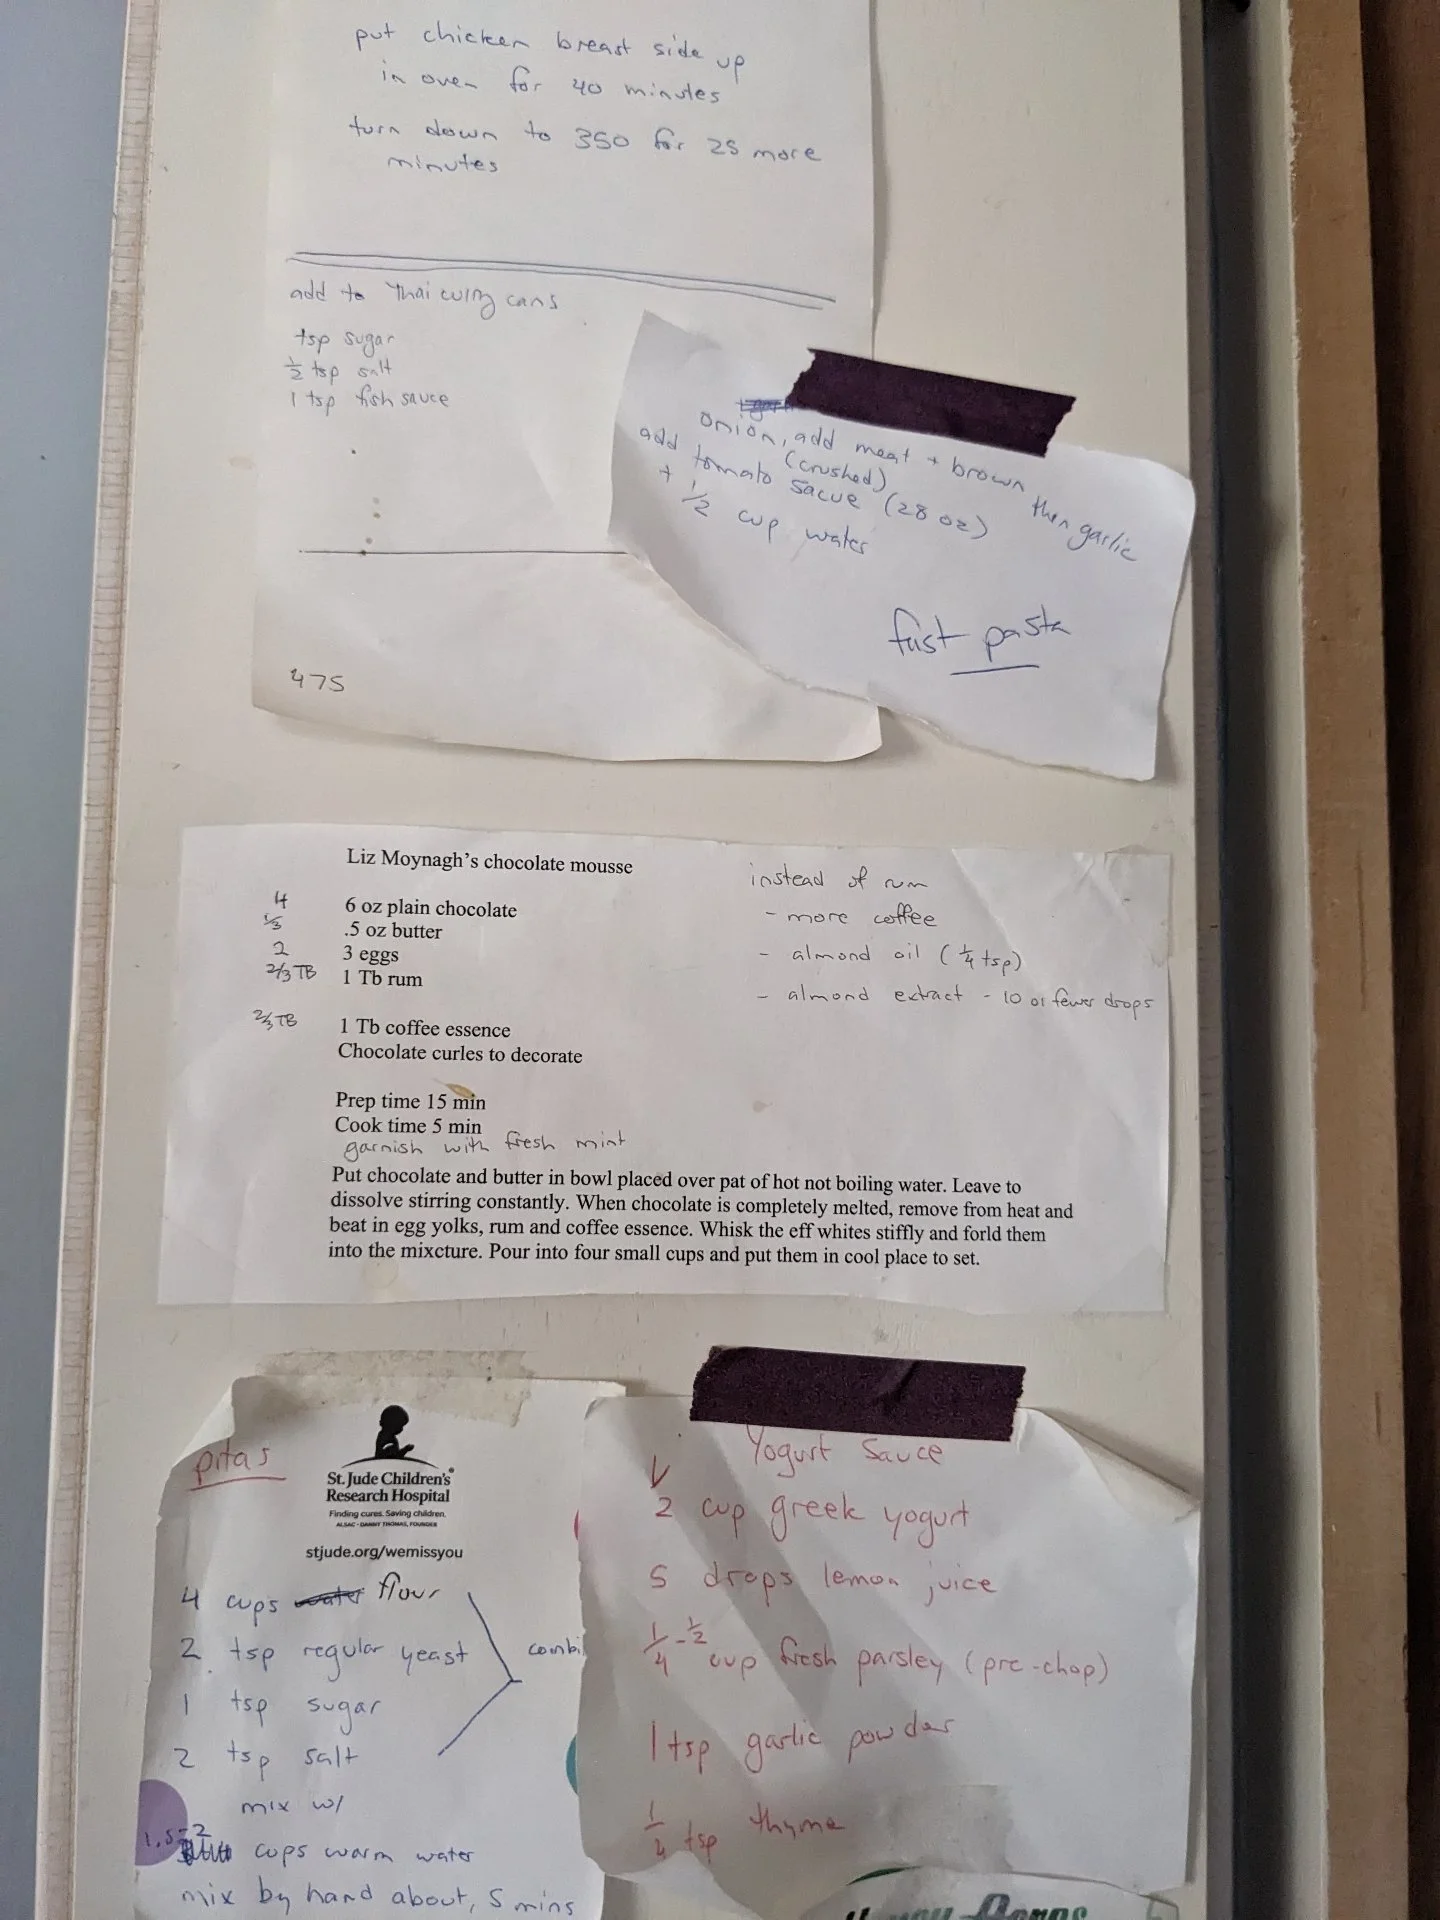 put chicken breast side up
in oven for 40 minutes
turn down to 350 for 25 more
minutes
add to Thai curry cans
tsp sugar
1/2 tsp salt
1 tsp fish sauce
475
onion, add meat + brown then garlic
(crushed)
add tomato sacue (28 oz)
+ 1/2 cup water
fast pasta
Liz Moynagh's chocolate mousse
4 6 oz plain chocolate
1/3 .5 oz butter
2 3 eggs
2/3 TB 1 Tb rum
2/3 TB 1 Tb coffee essence
Chocolate curles to decorate
instead of rum
- more coffee
- almond oil (1/4 tsp)
- almond extract - 10 or fewer drops
Prep time 15 min
Cook time 5 min
garnish with fresh mint
Put chocolate and butter in bowl placed over pat of hot not boiling water. Leave to
dissolve stirring constantly. When chocolate is completely melted, remove from heat and
beat in egg yolks, rum and coffee essence. Whisk the eff whites stiffly and forld them
into the mixcture. Pour into four small cups and put them in cool place to set.
pitas
St. Jude Children's
Research Hospital
Finding cures. Saving children.
ALSAC • DANNY THOMAS, FOUNDER
stjude.org/wemissyou
4 cups water flour
2 tsp regular yeast combi
1 tsp sugar
2 tsp salt
mix w/
1.5-2
cups warm water
mix by hand about, 5 mins
Yogurt Sauce
2 cup greek yogurt
5 drops lemon juice
1/4-1/2 cup fresh parsley (pre-chop)
1 tsp garlic powder
tsp thyme